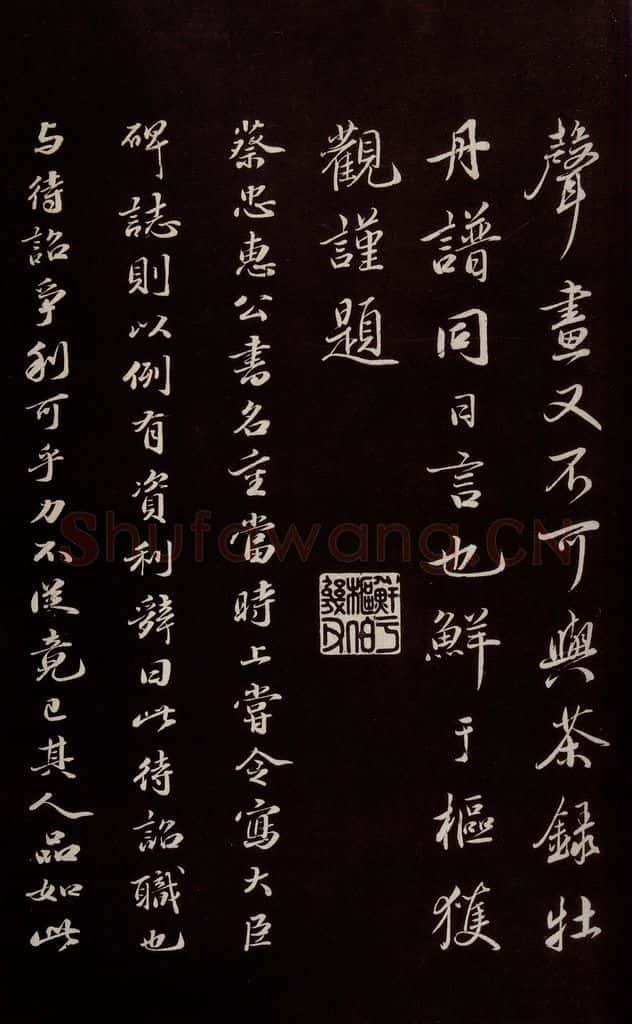 聲畫又不可與茶録牡
丹譜同日言也鮮于樞獲
觀謹題
鮮于樞伯幾父
蔡忠惠公書名重當時上嘗令寫大臣
碑誌則以例有資利辭曰此待詔職也
与待詔爭利可乎力不從竟已其人品如此
Shufawang.CN